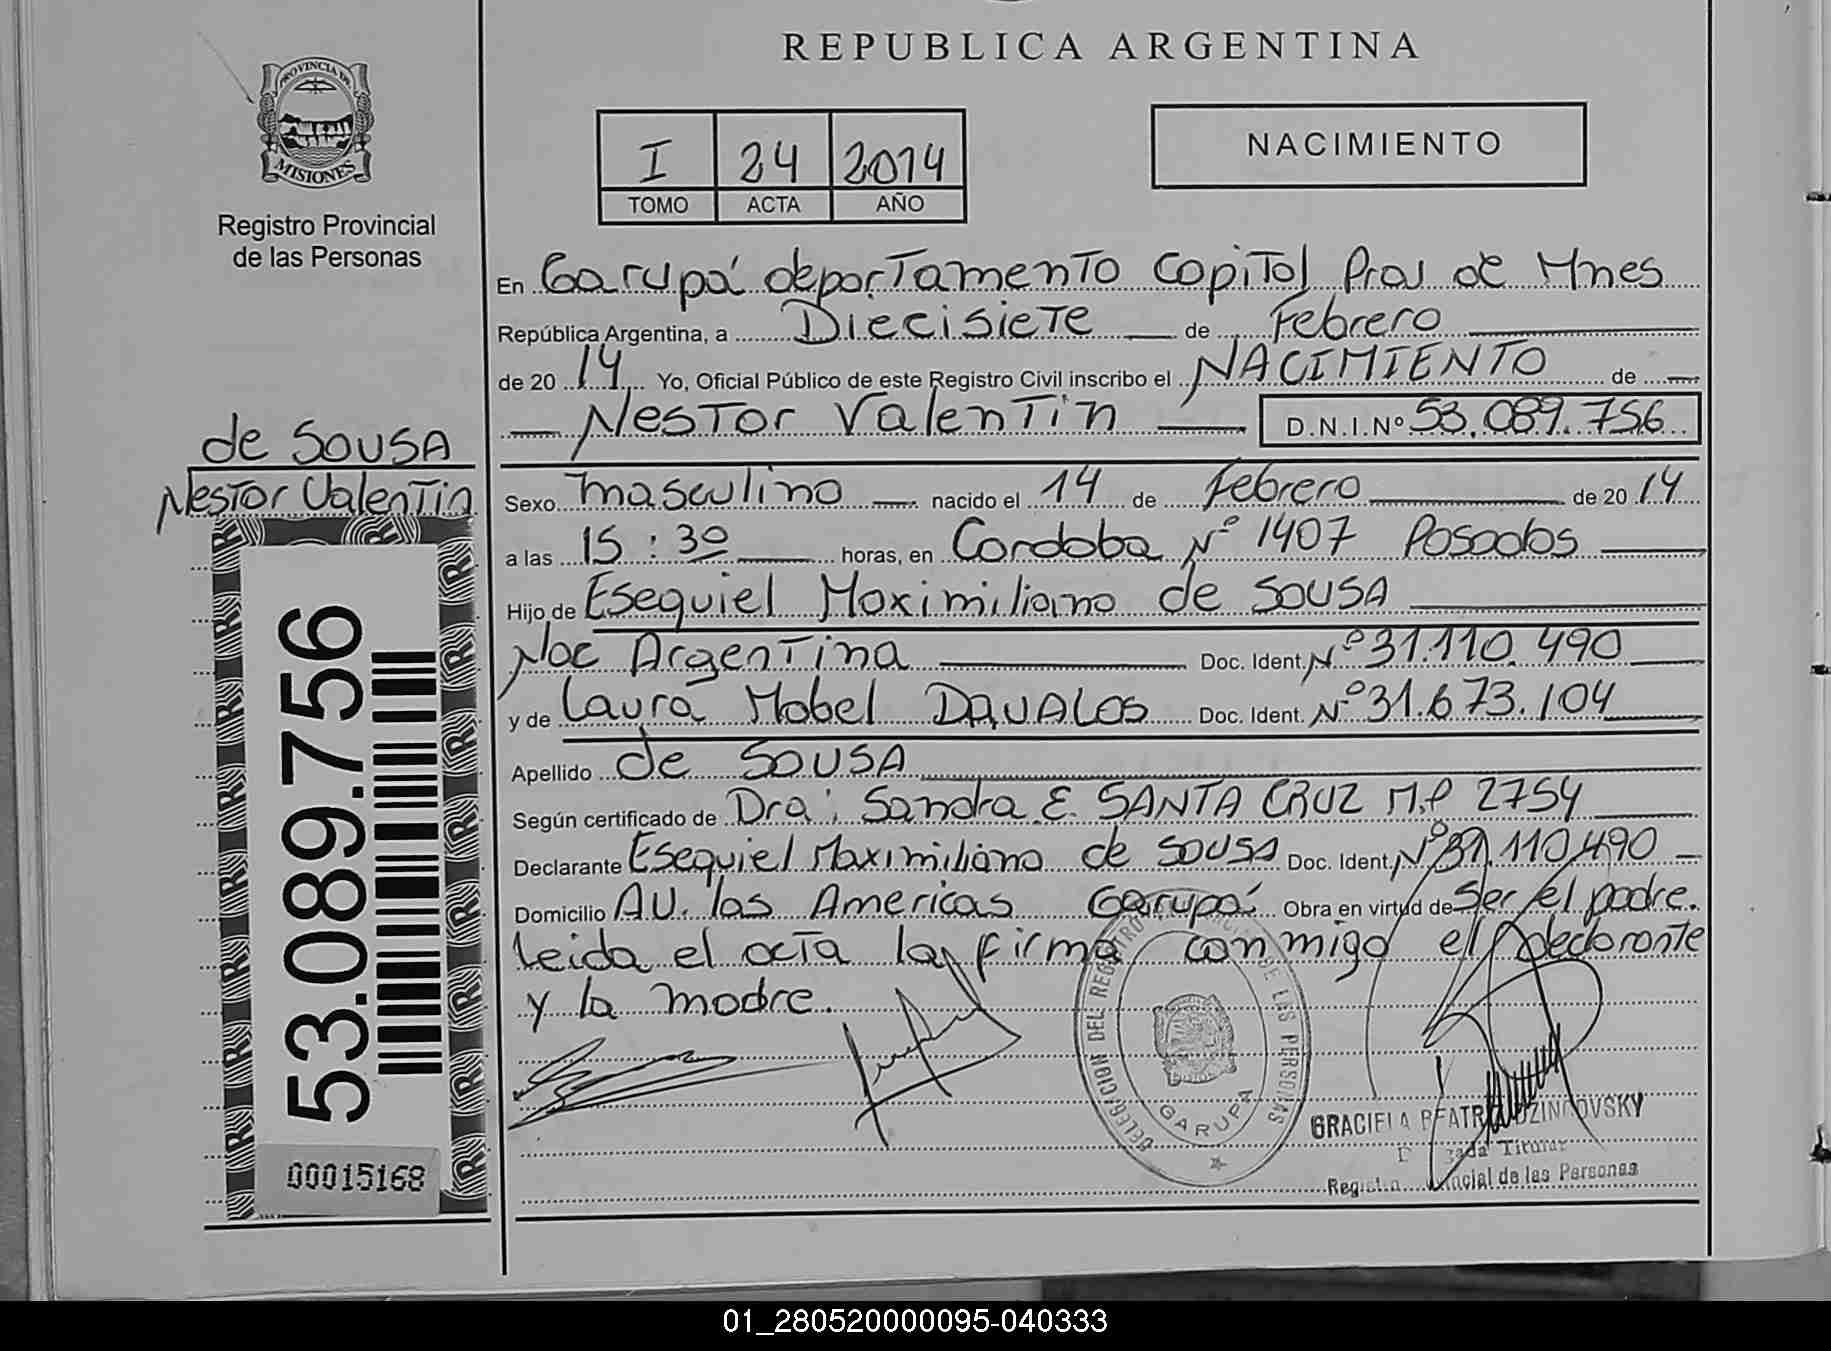 REPUBLICA ARGENTINA
PROVINCIA DE
MISIONES
Registro Provincial
de las Personas
I 24 2014
TOMO ACTA AÑO
NACIMIENTO
En Garupá departamento Capital Prov de Mnes
República Argentina, a Diecisiete de Febrero
de 20 14 Yo, Oficial Público de este Registro Civil inscribo el NACIMIENTO de
Nestor Valentin D.N.I.Nº 53.089.756
de SOUSA
Nestor Valentin
Sexo masculino nacido el 14 de Febrero de 20 14
a las 15:30 horas, en Cordoba Nº 1407 Posadas
Hijo de Esequiel Maximiliano de SOUSA
Nac Argentina Doc. Ident. Nº 31.110.490
y de Laura Mabel DAVALOS Doc. Ident. Nº 31.673.104
Apellido de SOUSA
Según certificado de Dra: Sandra E. SANTA CRUZ M.P 2754
Declarante Esequiel Maximiliano de SOUSA Doc. Ident. Nº 31.110.490
Domicilio AV. las Americas Garupá Obra en virtud de Ser el padre.
Leida el acta la firma conmigo el declarante
y la madre.
53.089.756
00015168
DELEGACION DEL REGISTRO DE LAS PERSONAS
GARUPA
GRACIELA BEATR
Titular
de las Personas
01_280520000095-040333